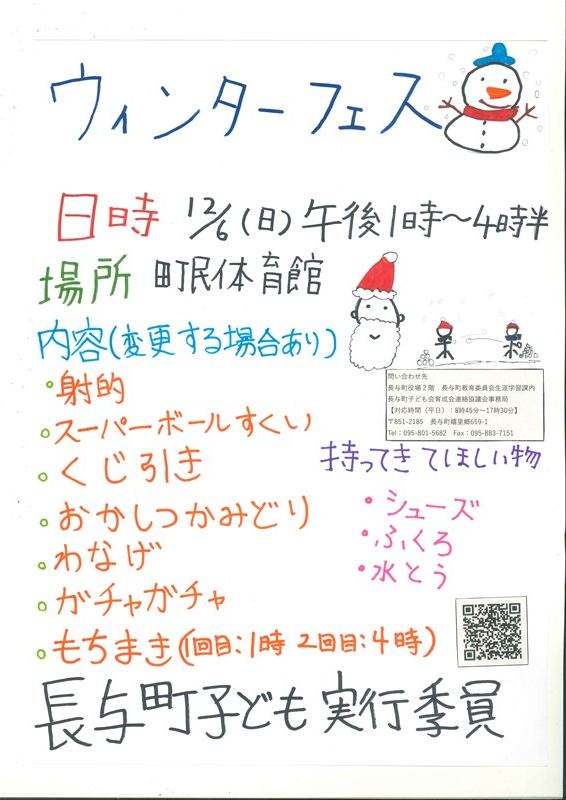 ウィンターフェス
日時 12/6(日)午後1時～4時半
場所 町民体育館
内容(変更する場合あり)
射的
スーパーボールすくい
くじ引き
おかしつかみどり
わなげ
ガチャガチャ
もちまき(1回目:1時 2回目:4時)
問い合わせ先
長与町役場2階 長与町教育委員会生涯学習課内
長与町子ども会育成会連絡協議会事務局
【対応時間(平日):8時45分～17時30分】
〒851-2185 長与町嬉里郷659-1
Tel:095-801-5682 Fax:095-883-7151
持ってきてほしい物
・シューズ
・ふくろ
・水とう
長与町子ども実行委員